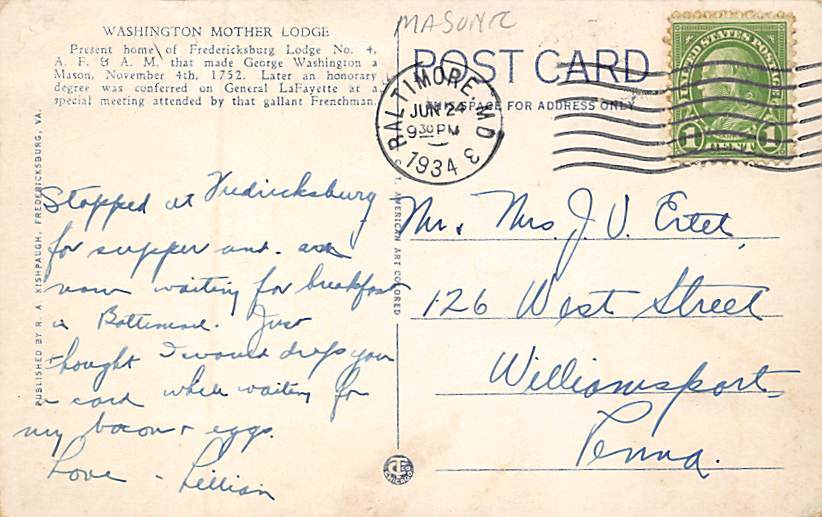 MASONIC
WASHINGTON MOTHER LODGE
Present home of Fredericksburg Lodge No. 4,
A. F. & A. M. that made George Washington a
Mason, November 4th, 1752. Later an honorary
degree was conferred on General LaFayette at a
special meeting attended by that gallant Frenchman.
POST CARD
THIS SPACE FOR ADDRESS ONLY
BALTIMORE, MD
JUN 24
9 30 PM
1934
3
UNITED STATES POSTAGE
1 CENT 1
PUBLISHED BY R. A. KISHPAUGH, FREDERICKSBURG, VA.
AMERICAN ART COLORED
Stopped at Fredricksburg
for supper and. are
now waiting for breakfast
in Baltimore. Just
thought I would drop you
a card while waiting for
my bacon + eggs.
Love - Lillian
Mr. Mrs. J. V. Ertel,
126 West Street
Williamsport,
Penna.